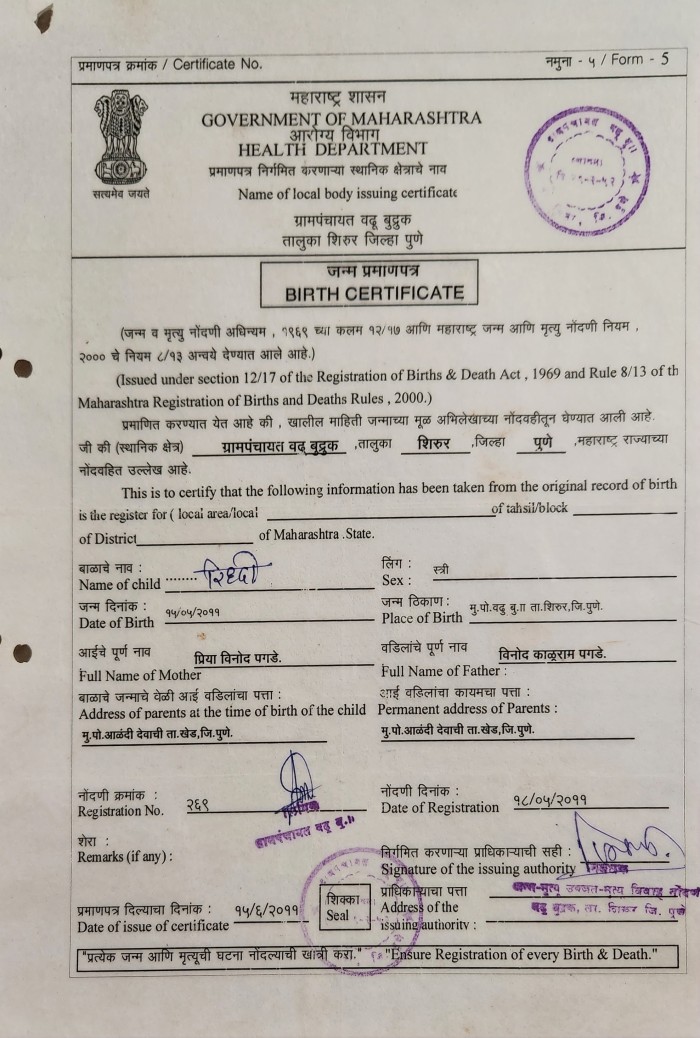 प्रमाणपत्र क्रमांक / Certificate No. नमुना - ५ / Form - 5
महाराष्ट्र शासन
GOVERNMENT OF MAHARASHTRA
आरोग्य विभाग
HEALTH DEPARTMENT
प्रमाणपत्र निर्गमित करणाऱ्या स्थानिक क्षेत्राचे नाव
सत्यमेव जयते
Name of local body issuing certificate
ग्रामपंचायत वढू बुद्रुक
तालुका शिरुर जिल्हा पुणे
जन्म प्रमाणपत्र
BIRTH CERTIFICATE
(जन्म व मृत्यु नोंदणी अधिन्यम , १९६९ च्या कलम १२/१७ आणि महाराष्ट्र जन्म आणि मृत्यु नोंदणी नियम ,
२००० चे नियम ८/१३ अन्वये देण्यात आले आहे.)
(Issued under section 12/17 of the Registration of Births & Death Act , 1969 and Rule 8/13 of th
Maharashtra Registration of Births and Deaths Rules , 2000.)
प्रमाणित करण्यात येत आहे की , खालील माहिती जन्माच्या मूळ अभिलेखाच्या नोंदवहीतून घेण्यात आली आहे.
जी की (स्थानिक क्षेत्र) ग्रामपंचायत वढू बुद्रुक ,तालुका शिरुर ,जिल्हा पुणे ,महाराष्ट्र राज्याच्या
नोंदवहित उल्लेख आहे.
This is to certify that the following information has been taken from the original record of birth
is the register for ( local area/local of tahsil/block
of District of Maharashtra .State.
बाळाचे नाव : लिंग :
Name of child ........ रिध्दी Sex : स्त्री
जन्म दिनांक : जन्म ठिकाण :
Date of Birth १५/०५/२०११ Place of Birth मु.पो.वढु बु.॥ ता.शिरुर,जि.पुणे.
आईचे पूर्ण नाव प्रिया विनोद पगडे. वडिलांचे पूर्ण नाव विनोद काळूराम पगडे.
Full Name of Mother Full Name of Father :
बाळाचे जन्माचे वेळी आई वडिलांचा पत्ता : आई वडिलांचा कायमचा पत्ता :
Address of parents at the time of birth of the child Permanent address of Parents :
मु.पो.आळंदी देवाची ता.खेड,जि.पुणे. मु.पो.आळंदी देवाची ता.खेड,जि.पुणे.
नोंदणी क्रमांक : नोंदणी दिनांक :
Registration No. २६९ Date of Registration १८/०५/२०११
ग्रामपंचायत वढू बु.॥
शेरा : निर्गमित करणाऱ्या प्राधिकाऱ्याची सही :
Remarks (if any) : Signature of the issuing authority
प्राधिकाऱ्याचा पत्ता
शिक्का
प्रमाणपत्र दिल्याचा दिनांक : १५/६/२०११ Seal Address of the वढु बुद्रुक, ता. शिरूर जि. पुणे
Date of issue of certificate issuing authority :
"प्रत्येक जन्म आणि मृत्यूची घटना नोंदल्याची खात्री करा." "Ensure Registration of every Birth & Death."